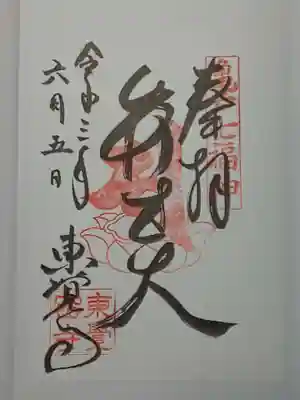 奉拝
七福神
弁才天
令和三年
六月五日
東覚寺
東覺